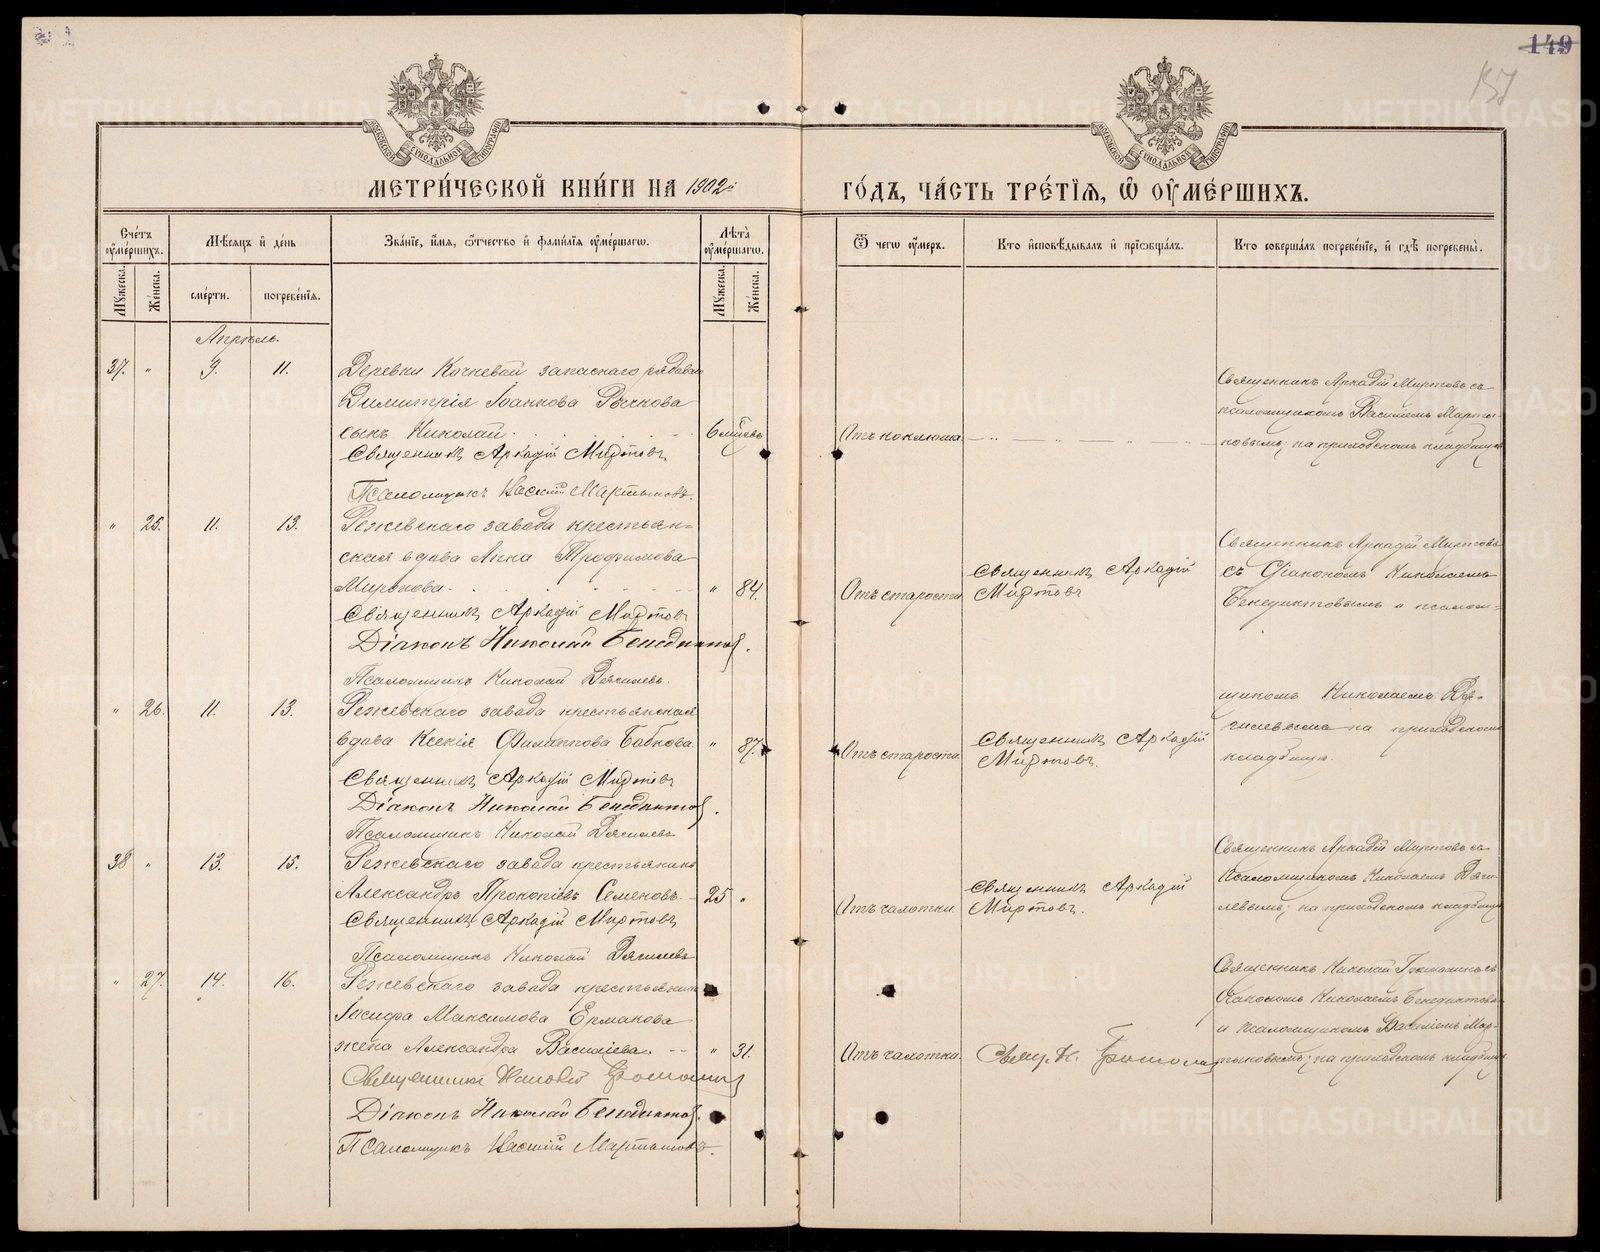 149
157
МЕТРИ́ЧЕСКОЙ КНИ́ГИ НА 1902й
ГО́ДЪ, ЧА́СТЬ ТРЕ́ТЇѦ, Ѽ ОУ҆МЕ́РШИХЪ.
Сче́тъ оу҆ме́ршихъ.
Мѣ́сѧцъ и҆ де́нь
Зва́нїе, и҆́мѧ, ѻ҆́тчество и҆ фами́лїѧ оу҆ме́ршагѡ.
Лѣ́та оу҆ме́ршагѡ.
Ѿ чегѡ̀ оу҆́меръ.
Кто̀ и҆сповѣ́дывалъ и҆ прїѡбща́лъ.
Кто̀ соверша́лъ погребе́нїе, и҆ гдѣ̀ погребены̀.
Мꙋ́жеска.
Же́нска.
сме́рти.
погребе́нїѧ.
Мꙋ́жеска.
Же́нска.
Апрѣль.
37. " 9. 11. Деревни Кочневой запаснаго рядоваго
Димитрія Іоаннова
сынъ Николай 6 мѣсевъ
Священникъ Аркадій Миртовъ
Псаломщикъ Василій Мартыновъ.
Отъ коклюша
Священникъ Аркадій Миртовъ съ
псаломщикомъ Василіемъ Марты-
новымъ; на приходскомъ кладбищѣ
" 25. 11. 13. Режевскаго завода крестьян-
ская вдова Анна Трофимова
Миронова " 84.
Священникъ Аркадій Миртовъ
Діаконъ Николай Бенедиктовъ.
Псаломщикъ Николай Дягилевъ.
Отъ старости
Священникъ Аркадій
Миртовъ
Священникъ Аркадій Миртовъ
съ Діакономъ Николаемъ
Бенедиктовымъ и псалом-
щикомъ Николаемъ Дя-
гилевымъ на приходскомъ
кладбищѣ.
" 26. 11. 13. Режевскаго завода крестьянская
вдова Ксенія Филиппова Бабкова " 87.
Священникъ Аркадій Миртовъ
Діаконъ Николай Бенедиктовъ.
Псаломщикъ Николай Дягилевъ
Отъ старости.
Священникъ Аркадій
Миртовъ.
38 " 13. 15. Режевскаго завода крестьянинъ
Александръ Прокопіевъ Семеновъ. 25 "
Священникъ Аркадій Миртовъ
Псаломщикъ Николай Дягилевъ
Отъ чахотки.
Священникъ Аркадій
Миртовъ.
Священникъ Аркадій Миртовъ съ
псаломщикомъ Николаемъ Дяги-
левымъ; на приходскомъ кладбищѣ
" 27. 14. 16. Режевскаго завода крестьянина
Іосифа Максимова Ермакова
жена Александра Васильева " 31.
Священникъ Николай
Діаконъ Николай Бенедиктовъ.
Псаломщикъ Василій Мартыновъ.
Отъ чахотки.
Свящ. Н.
Священникъ Николай
Діакономъ Николаемъ Бенедиктовымъ
и псаломщикомъ Василіемъ Мар-
тыновымъ; на приходскомъ кладбищѣ
METRIKI.GASO-URAL.RU